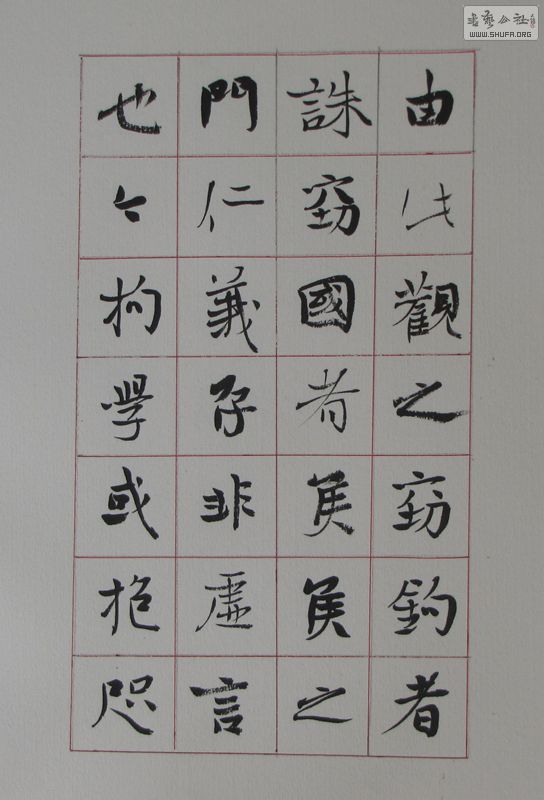 由此觀之窃鈎者
誅窃國者矦矦之
門仁義存非虛言
也今拘學或抱咫
書藝公社
WWW.SHUFA.ORG